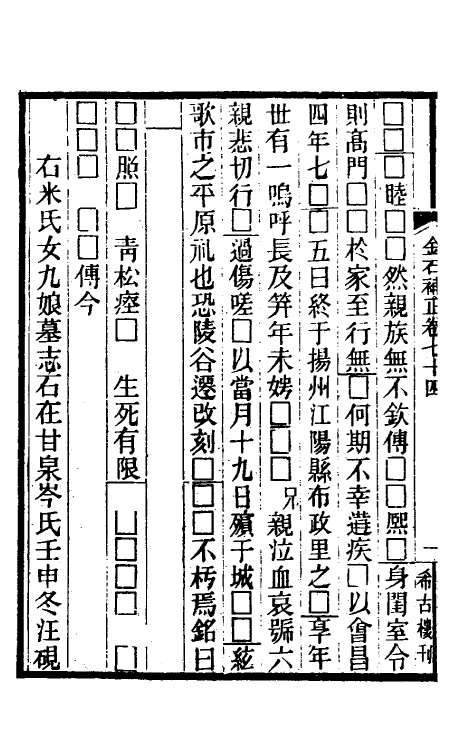 金石補正卷七十四
一
希古樓刊
□□□睦□□然親族無不欽傳□□熙□身閨室令
則高門□□於家至行無□何期不幸遘疾□以會昌
四年七□□五日終于揚州江陽縣布政里之□享年
廿有一嗚呼長及笄年未娉□□□兄親泣血哀號六
親悲切行□過傷嗟□以當月十九日殯于城□□絃
歌市之平原礼也恐陵谷遷改刻□□□不朽焉銘曰
□□照□ 青松瘞□ 生死有限 □□□□ □
□□□ □□傳今
右米氏女九娘墓志石在甘泉岑氏壬申冬汪硯